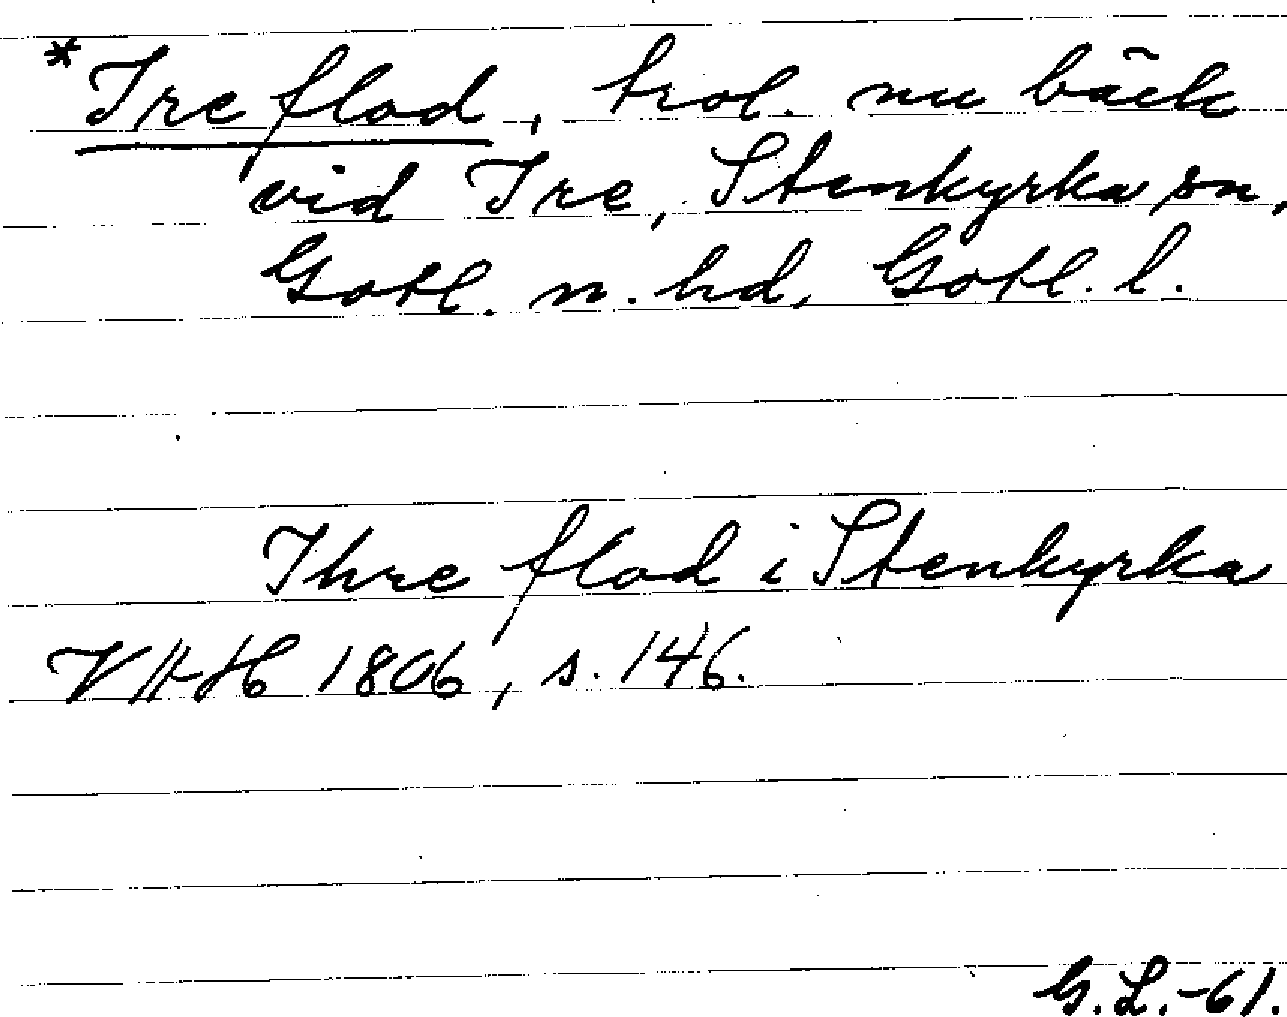 *Ire flod, trol. nu bäck
vid Ire, Stenkyrka sn,
Gotl. n. hd, Gotl. l.
Ihre flod i Stenkyrka
VAH 1806, s. 146.
G.L.-61.